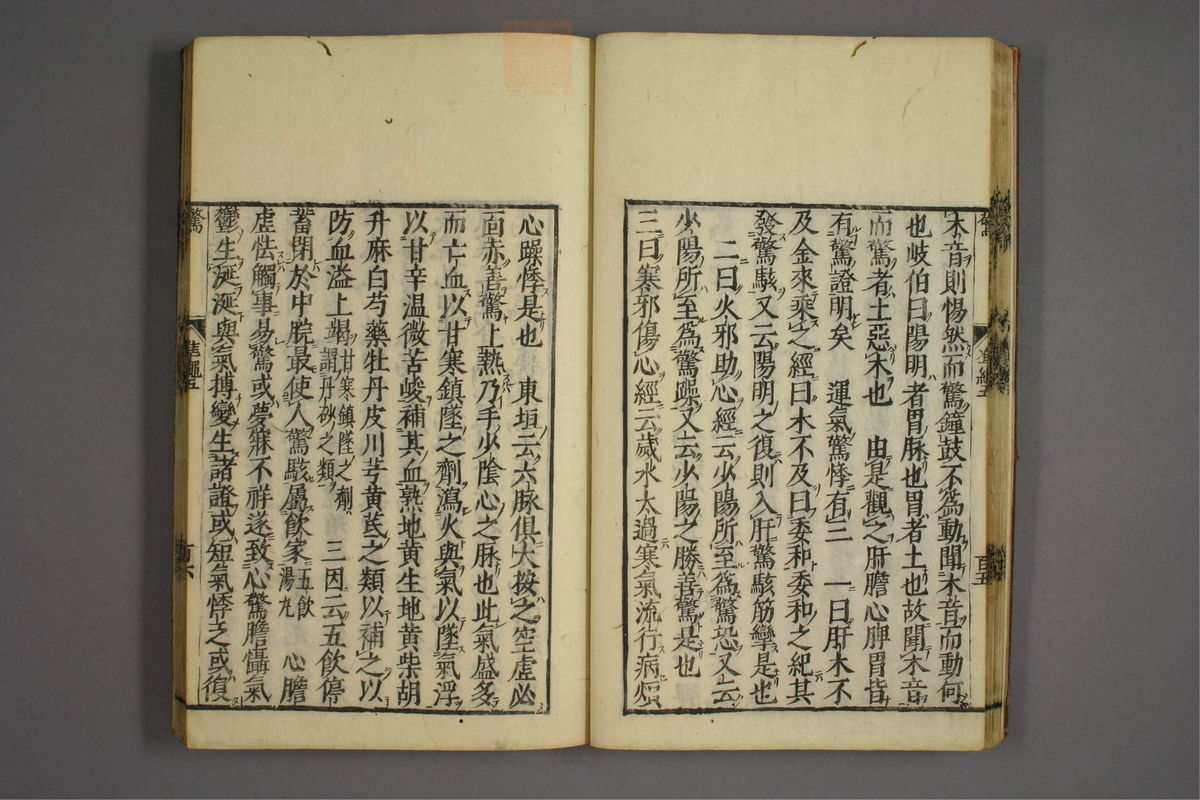 木音則惕然而驚鐘鼓不爲動聞木音而動何
也岐伯曰陽明者胃脉也胃者土也故聞木音
而驚者土惡木也　由是觀之肝膽心脾胃皆
有驚證明矣　運氣驚悸有三　一曰肝木不
及金來乘之經曰木不及曰委和委和之紀其
發驚駭又云陽明之復則入肝驚駭筋攣是也
二曰火邪助心經云少陽所至爲驚恐又云
少陽所至爲驚躁又云少陽之勝善驚是也
三曰寒邪傷心經云歲水太過寒氣流行病煩
心躁悸是也　東垣云六脉俱大按之空虛必
面赤善驚上熱乃手少陰心之脉也此氣盛多
而亡血以甘寒鎮墜之劑瀉火與氣以墜氣浮
以甘辛温微苦峻補其血熟地黄生地黄柴胡
升麻白芍藥牡丹皮川芎黄芪之類以補之以
防血溢上竭甘寒鎮墜之劑謂丹砂之類　三因云五飲停
蓄閉於中脘最使人驚駭屬飲家五飲湯丸　心膽
虚怯觸事易驚或夢寐不祥遂致心驚膽懾氣
鬱生涎涎與氣搏變生諸證或短氣悸乏或復
驚
百五
驚
準繩五
百六